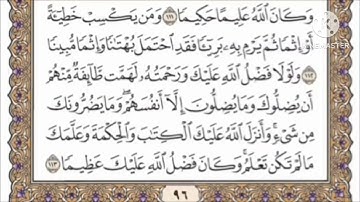 وَكَانَ ٱللَّهُ عَلِيمًا حَكِيمًا ١١١ وَمَن يَكْسِبْ خَطِيٓـَٔةً
أَوْ إِثْمًا ثُمَّ يَرْمِ بِهِۦ بَرِيٓـًٔا فَقَدِ ٱحْتَمَلَ بُهْتَٰنًا وَإِثْمًا مُّبِينًا
١١٢ وَلَوْلَا فَضْلُ ٱللَّهِ عَلَيْكَ وَرَحْمَتُهُۥ لَهَمَّت طَّآئِفَةٌ مِّنْهُمْ
أَن يُضِلُّوكَ وَمَا يُضِلُّونَ إِلَّآ أَنفُسَهُمْ وَمَا يَضُرُّونَكَ
مِن شَىْءٍ وَأَنزَلَ ٱللَّهُ عَلَيْكَ ٱلْكِتَٰبَ وَٱلْحِكْمَةَ وَعَلَّمَكَ
مَا لَمْ تَكُن تَعْلَمُ وَكَانَ فَضْلُ ٱللَّهِ عَلَيْكَ عَظِيمًا ١١٣
٩٦